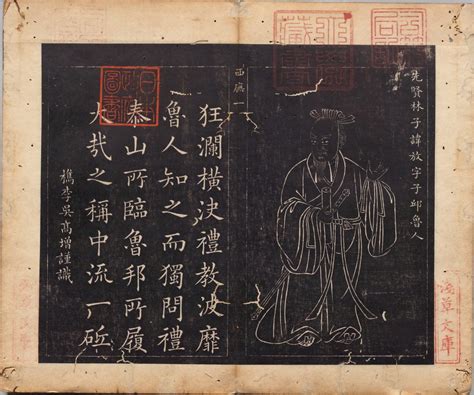 先賢林子諱放字子邱魯人
西廡一
狂瀾橫决禮教波靡
魯人知之而獨問禮
泰山所臨魯邦所履
大哉之稱中流一砥
檇李吳高增謹識
日本政府圖書
淺草文庫